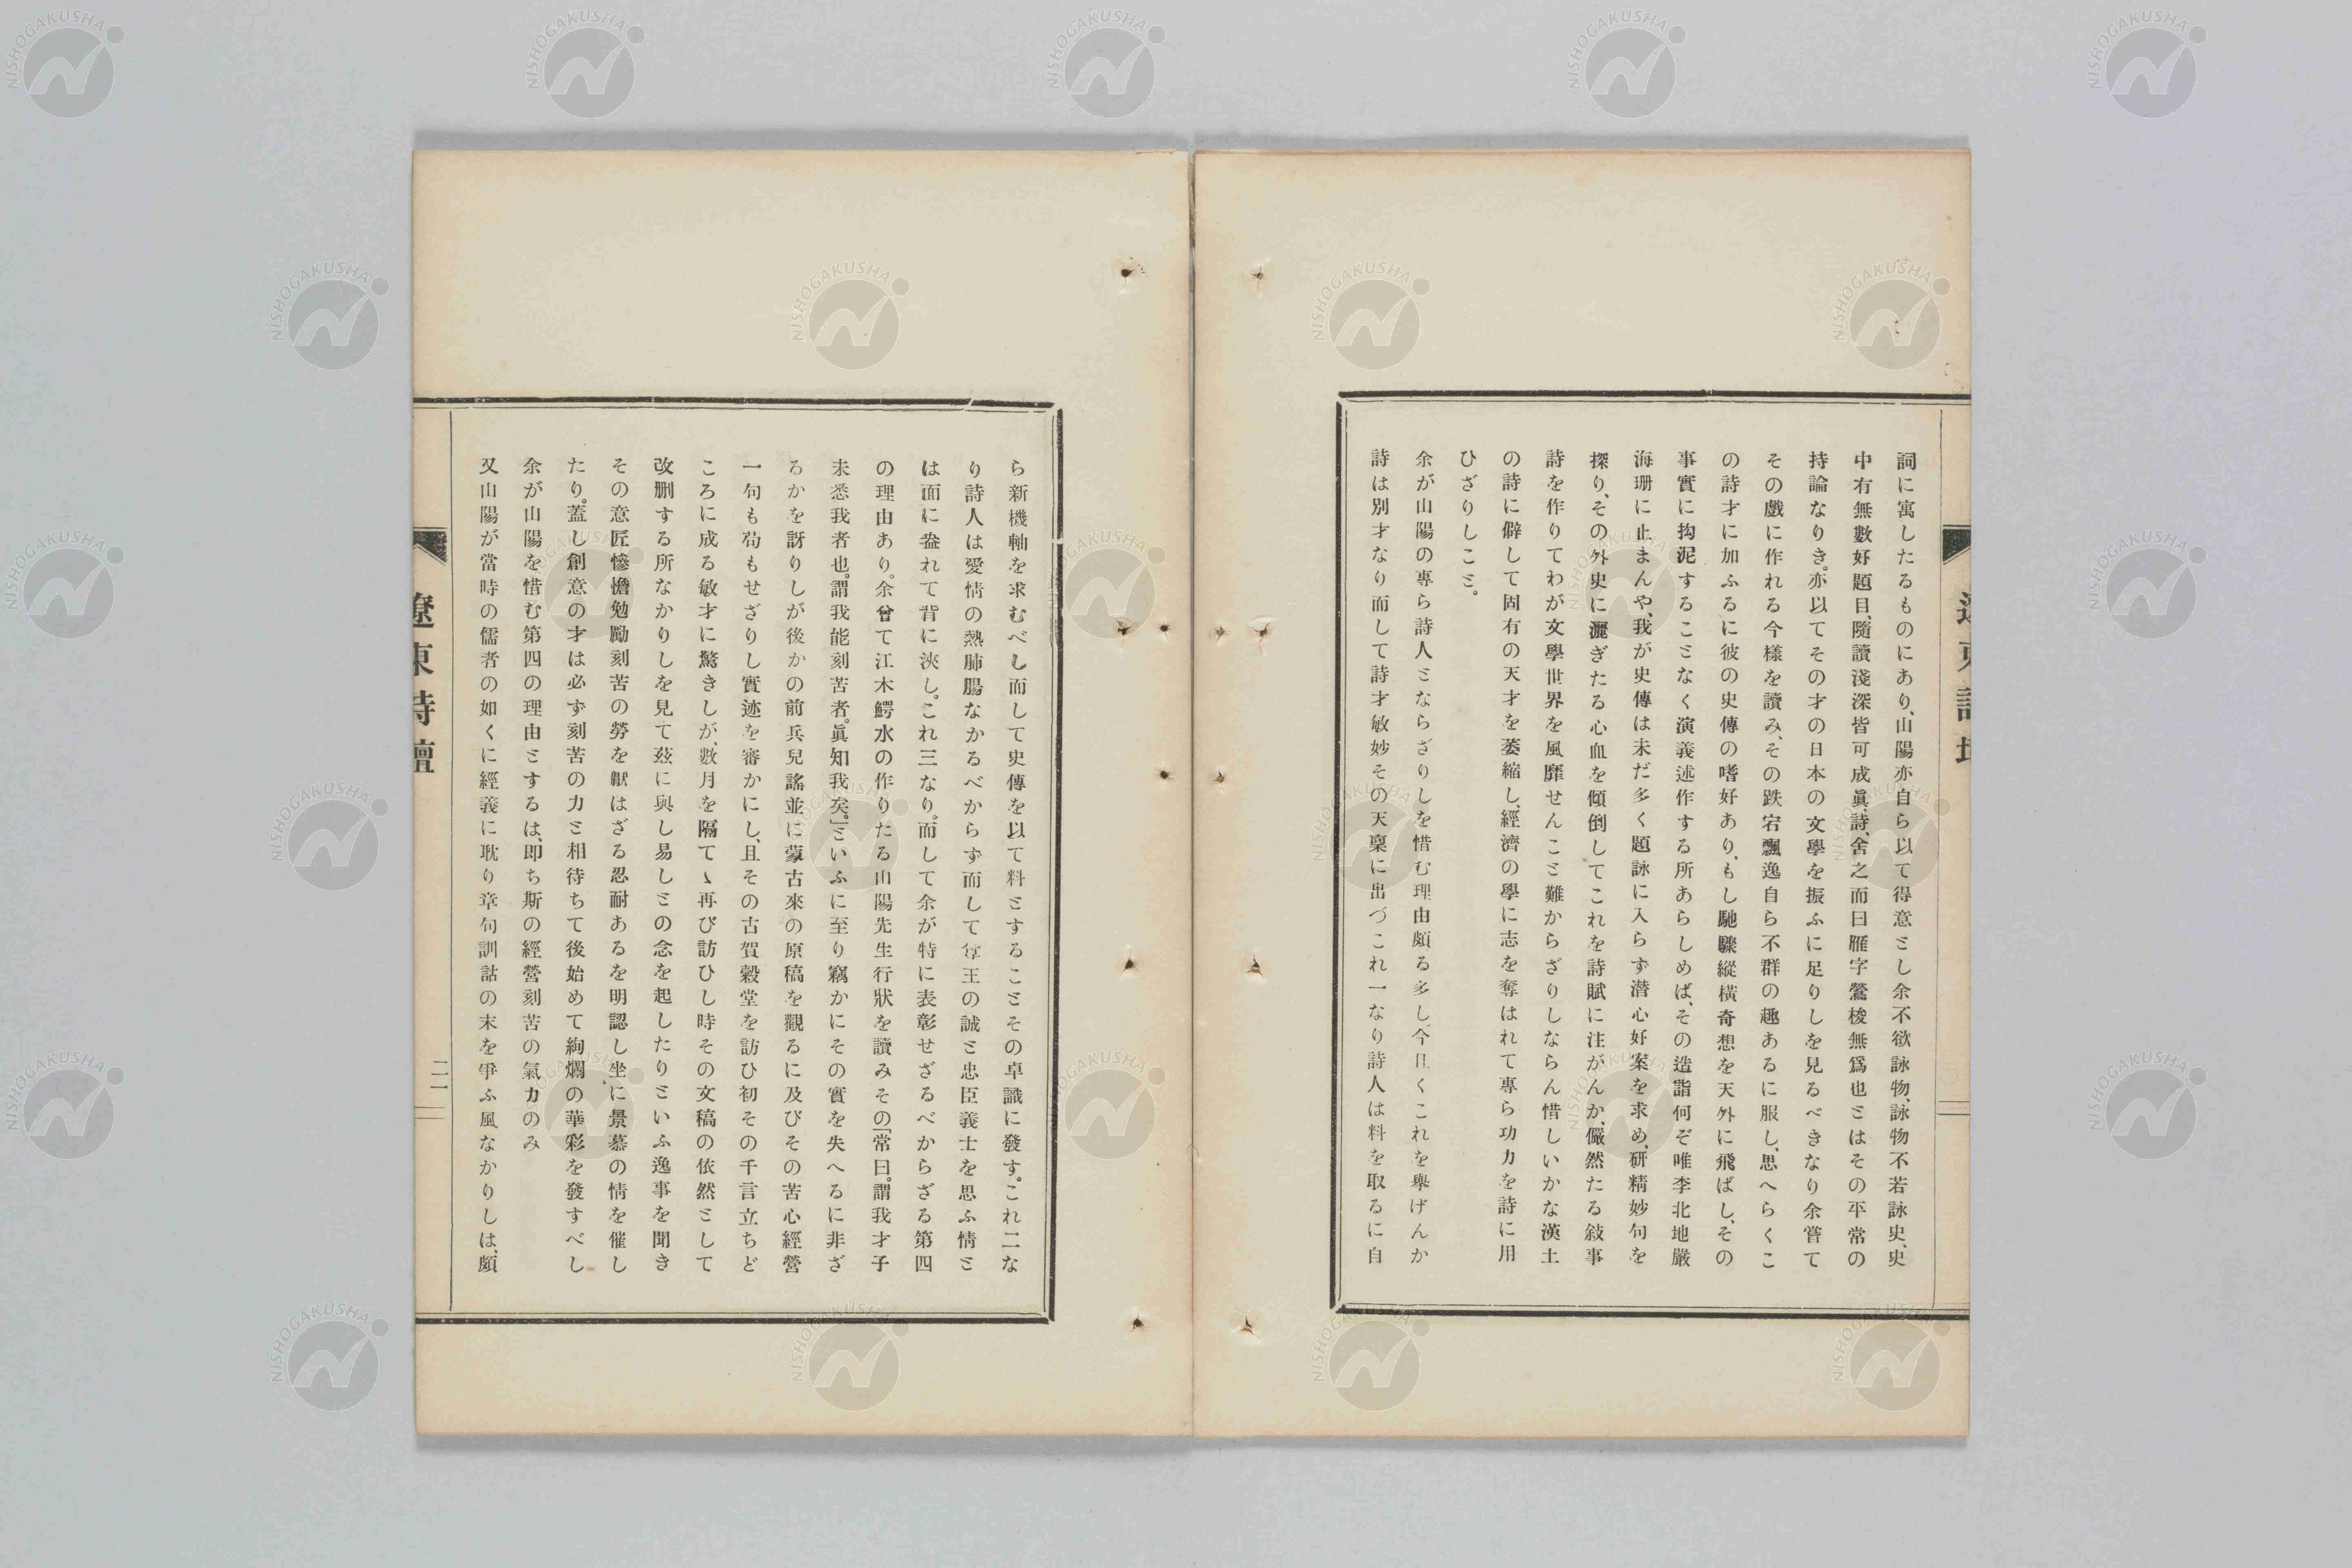 詞に寓したるものにあり、山陽亦自ら以て得意とし余不欲詠物、詠物不若詠史、史
中有無數好題目、隨讀淺深皆可成眞詩、舍之而曰雁字鶯梭無爲也とはその平常の
持論なりき。亦以てその才の日本の文學を振ふに足りしを見るべきなり余嘗て
その戲に作れる今樣を讀み、その跌宕飄逸自ら不群の趣あるに服し、思へらくこ
の詩才に加ふるに彼の史傳の嗜好あり、もし馳驟縱橫奇想を天外に飛ばし、その
事實に拘泥することなく演義述作する所あらしめば、その造詣何ぞ唯李北地嚴
海珊に止まんや、我が史傳は未だ多く題詠に入らず潛心好案を求め、研精妙句を
探り、その外史に灑ぎたる心血を傾倒してこれを詩賦に注がんか、儼然たる敍事
詩を作りてわが文學世界を風靡せんこと難からざりしならん惜しいかな漢土
の詩に僻して固有の天才を萎縮し、經濟の學に志を奪はれて專ら功力を詩に用
ひざりしこと。
余が山陽の專ら詩人とならざりしを惜む理由頗る多し、今日くこれを擧げんか
詩は別才なり而して詩才敏妙その天稟に出づこれ一なり詩人は料を取るに自
遼東詩壇
ら新機軸を求むべし而して史傳を以て料とすることその卓識に發す。これ二な
り詩人は愛情の熱肺腸なかるべからず而して尊王の誠と忠臣義士を思ふ情と
は面に盎れて背に浹し。これ三なり。而して余が特に表彰せざるべからざる第四
の理由あり。余曾て江木鰐水の作りたる山陽先生行狀を讀みその「常曰。謂我才子
未悉我者也。謂我能刻苦者。眞知我矣。」といふに至り竊かにその實を失へるに非ざ
るかを訝りしが後かの前兵兒謠並に蒙古來の原稿を觀るに及びその苦心經營
一句も苟もせざりし實迹を審かにし、且その古賀穀堂を訪ひ初その千言立ちど
ころに成る敏才に驚きしが、數月を隔てゝ再び訪ひし時その文稿の依然として
改刪する所なかりしを見て茲に與し易しとの念を起したりといふ逸事を聞き
その意匠慘憺勉勵刻苦の勞を厭はざる忍耐あるを明認し坐に景慕の情を催し
たり。蓋し創意の才は必ず刻苦の力と相待ちて後始めて絢爛の華彩を發すべし
余が山陽を惜む第四の理由とするは、即ち斯の經營刻苦の氣力のみ
又山陽が當時の儒者の如くに經義に耽り章句訓詁の末を爭ふ風なかりしは、頗
遼東詩壇
二一
NISHOGAKUSHA